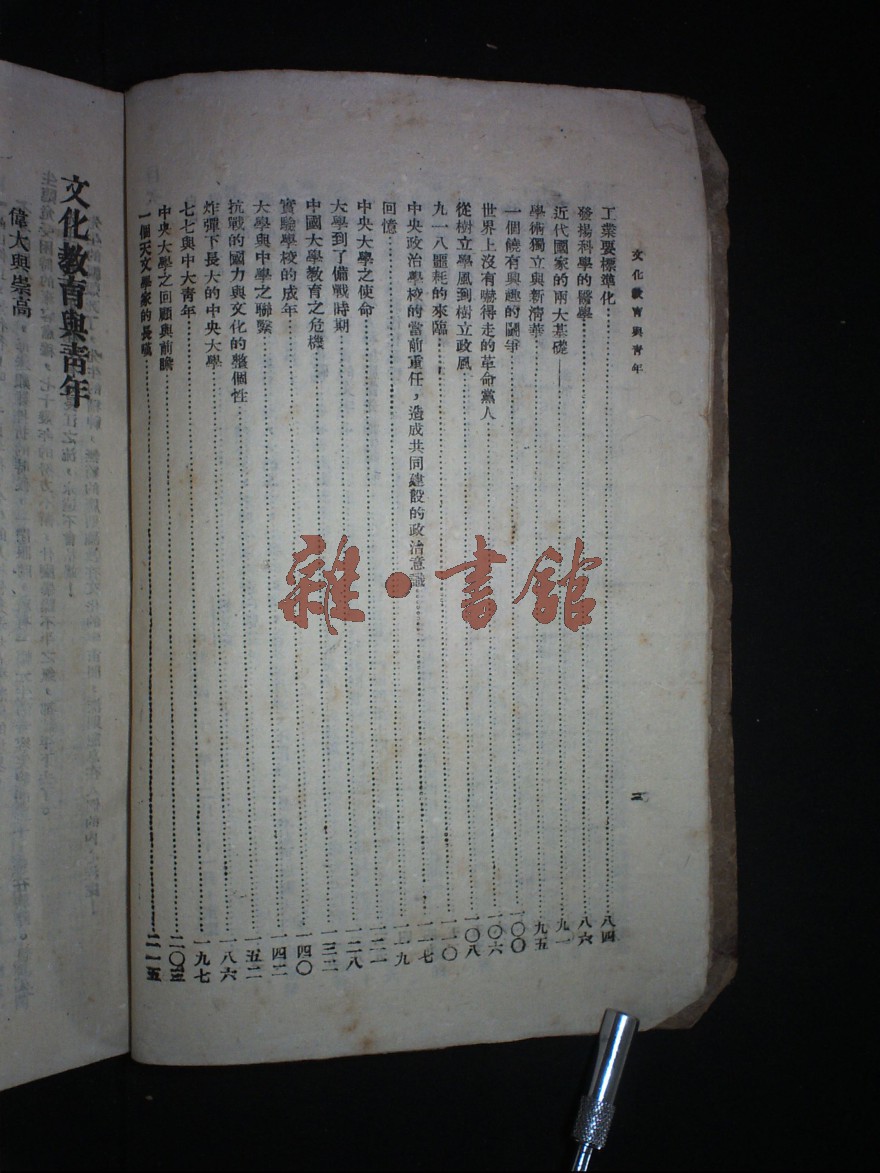 文化教育與青年
二
工業要標準化……八四
發揚科學的醫學……八六
近代國家的兩大基礎——……九一
學術獨立與新清華……九五
一個饒有興趣的鬭爭……一〇〇
世界上沒有嚇得走的革命黨人……一〇六
從樹立學風到樹立政風……一〇八
九一八噩耗的來臨……一一〇
中央政治學校的當前重任，造成共同建設的政治意識……一一七
回憶……一一九
中央大學之使命……一二一
大學到了備戰時期……一二八
中國大學教育之危機……一三二
實驗學校的成年……一四〇
大學與中學之聯繫……一四二
抗戰的國力與文化的整個性……一五二
炸彈下長大的中央大學……一八六
七七與中大青年……一九七
中央大學之回顧與前瞻……二〇三
一個天文學家的長嘆……二一五
文化教育與青年
偉大與崇高
雜·書館